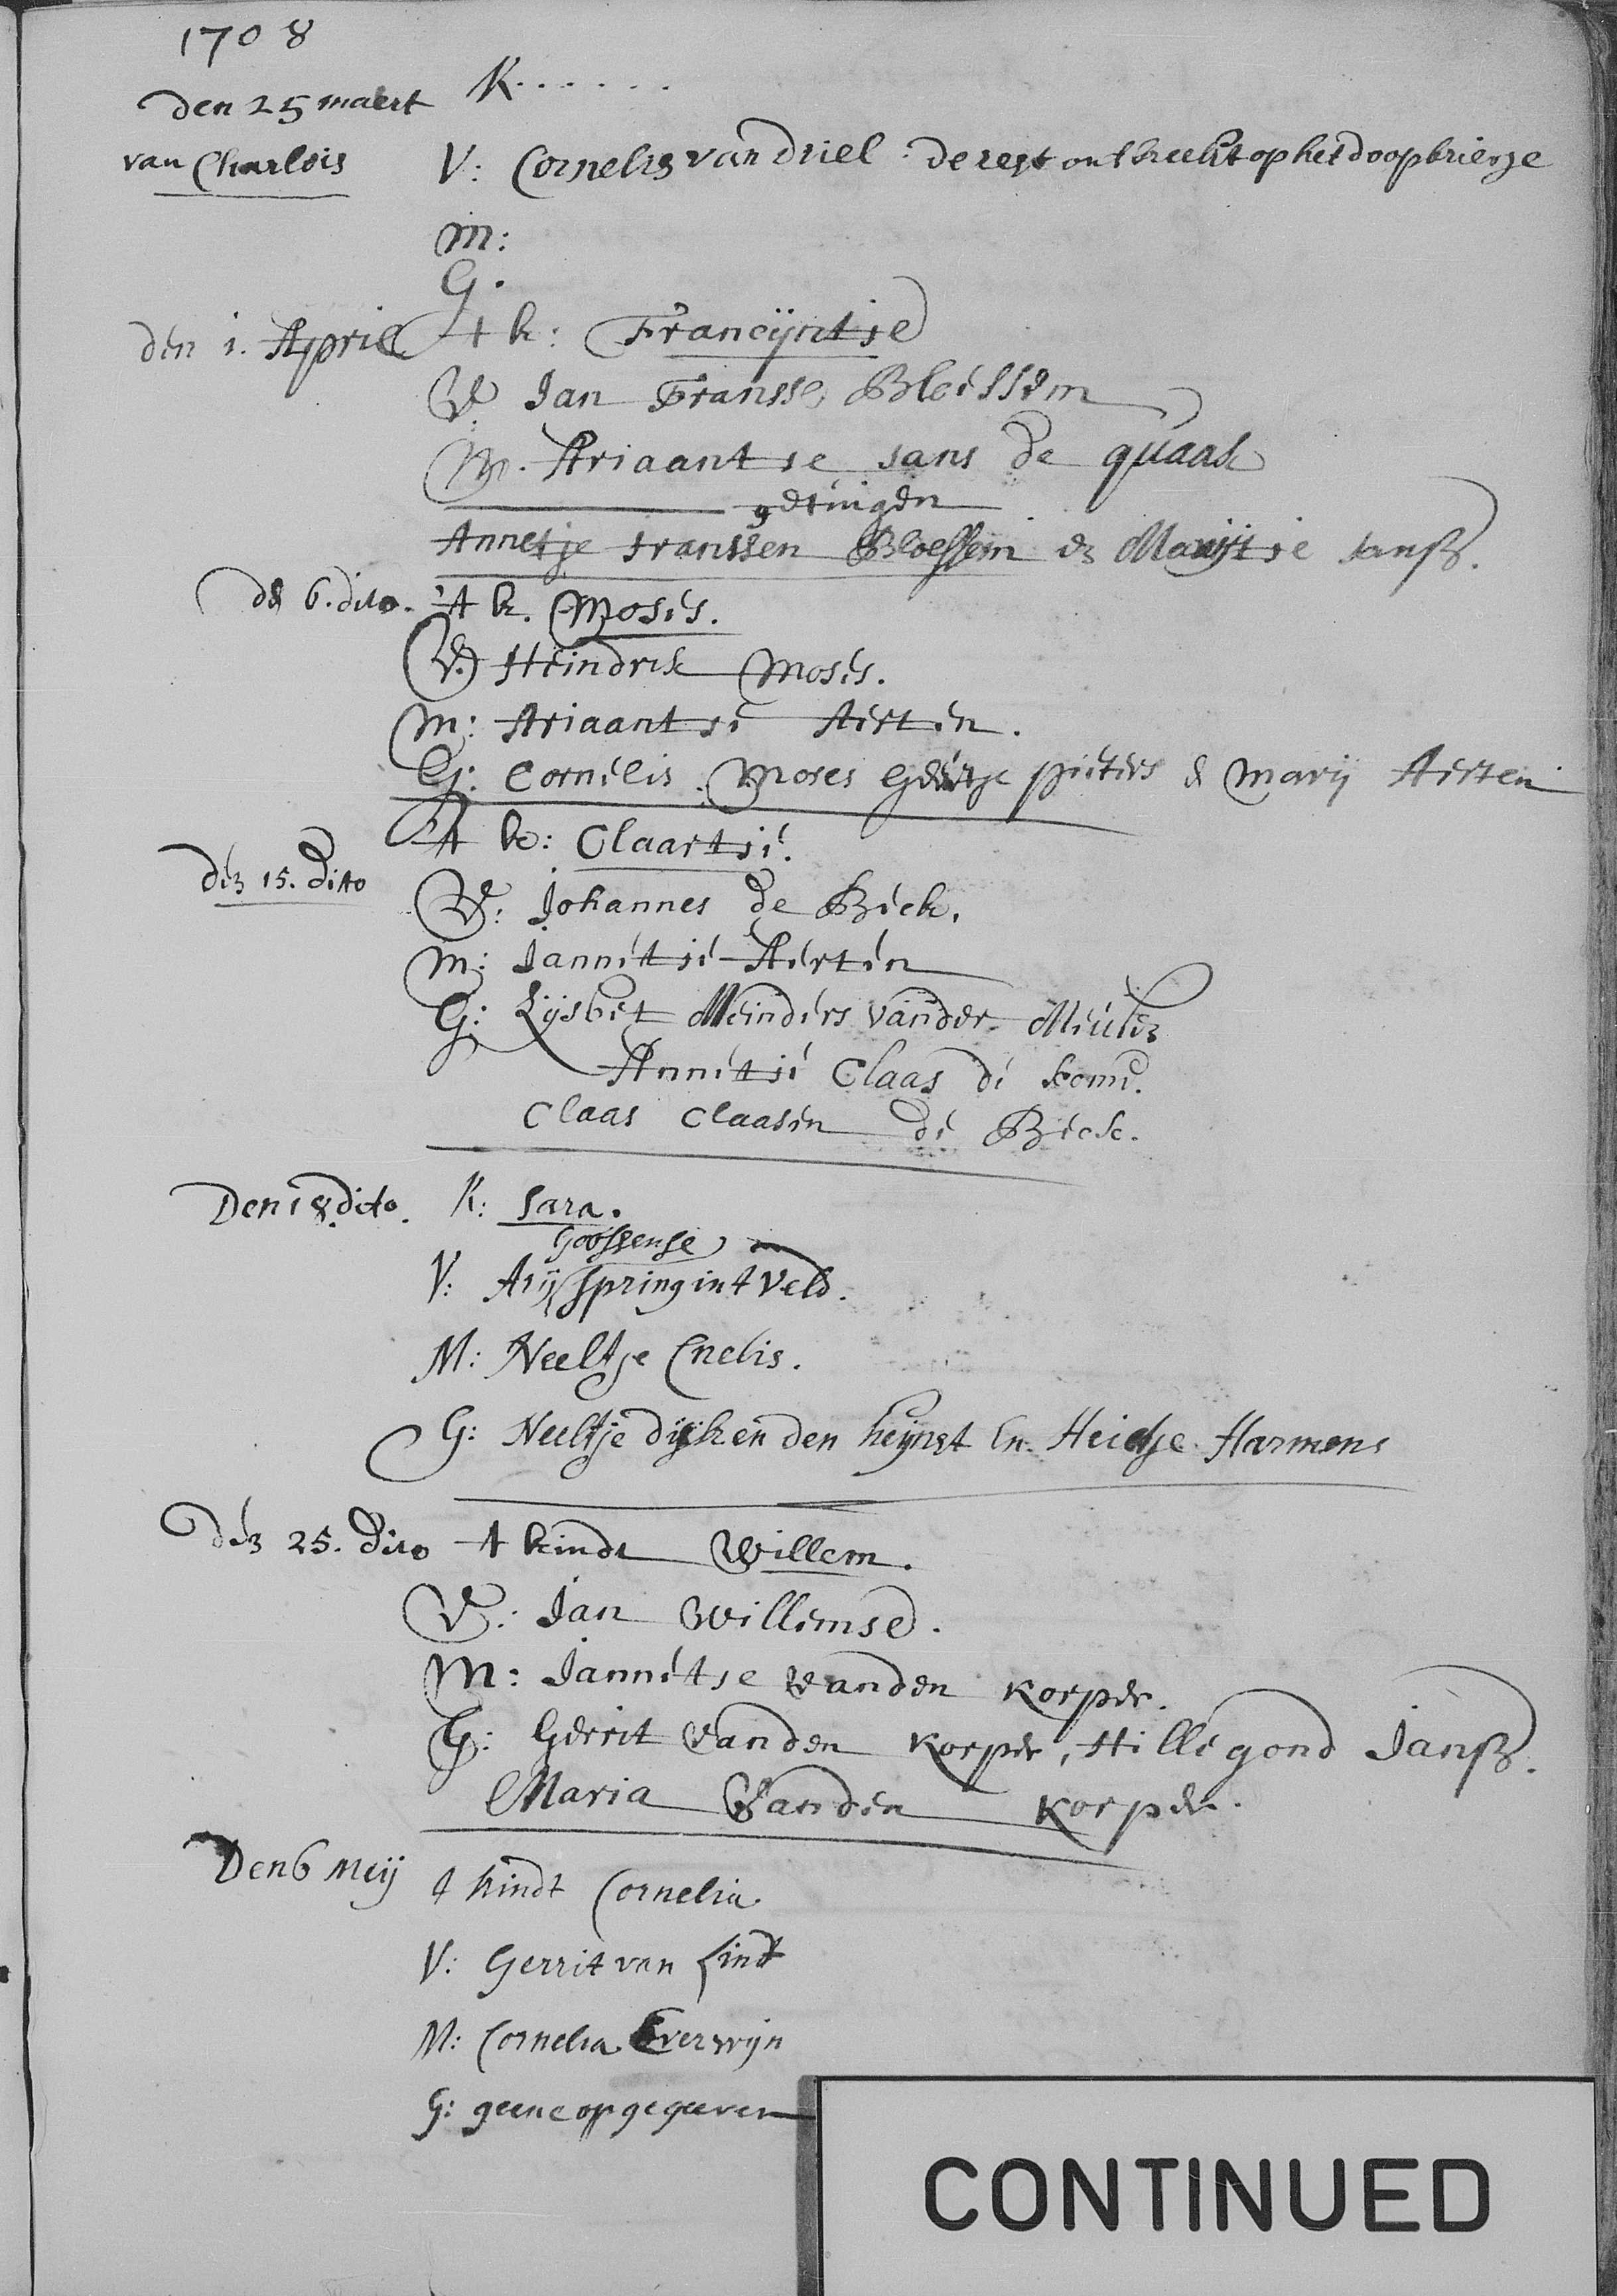 1708
den 25 maert K......
van Charlois V: Cornelis van driel : de rest ontbreekt op het doopbriefje
M:
G.
den 1. April t k: Francijntie
V. Jan Fransse Bloessem
M. Ariaantie Jans de quaak
getuigen
Annetje Franssen Bloessem en Marijtie Janss.
den 6. dito. 't k. Moses.
V. Heindrik Moses.
M: Ariaantie Aerten.
G: Cornelis Moses Geertje pieters & Marij Aerten
den 15. dito 't k: Claartie.
V: Johannes de Bick.
M: Jannetie Aerten
G: Lijsbet Meinders vander Meulen
Annetie Claas de
Claas Claasen de Bick.
Den 18. dito. K: Sara.
Goossense
V: Arij Spring int Veld.
M: Neeltje Cnelis.
G: Neeltje dijk en den heijnst En. Harmens
den 25. dito t kindt Willem.
V: Jan Willemse.
M: Jannetse vanden Korper.
G: Gerrit vanden Korper, Hillegond Janss.
Maria Vanden Korper.
Den 6 Meij t kindt Cornelia
V: Gerrit van Lindt
M: Cornelia Everwijn
G: geene opgegeeven
CONTINUED